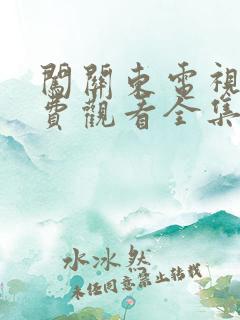 闖關東電視
費觀看全集
水冰然
未经同意禁止转载